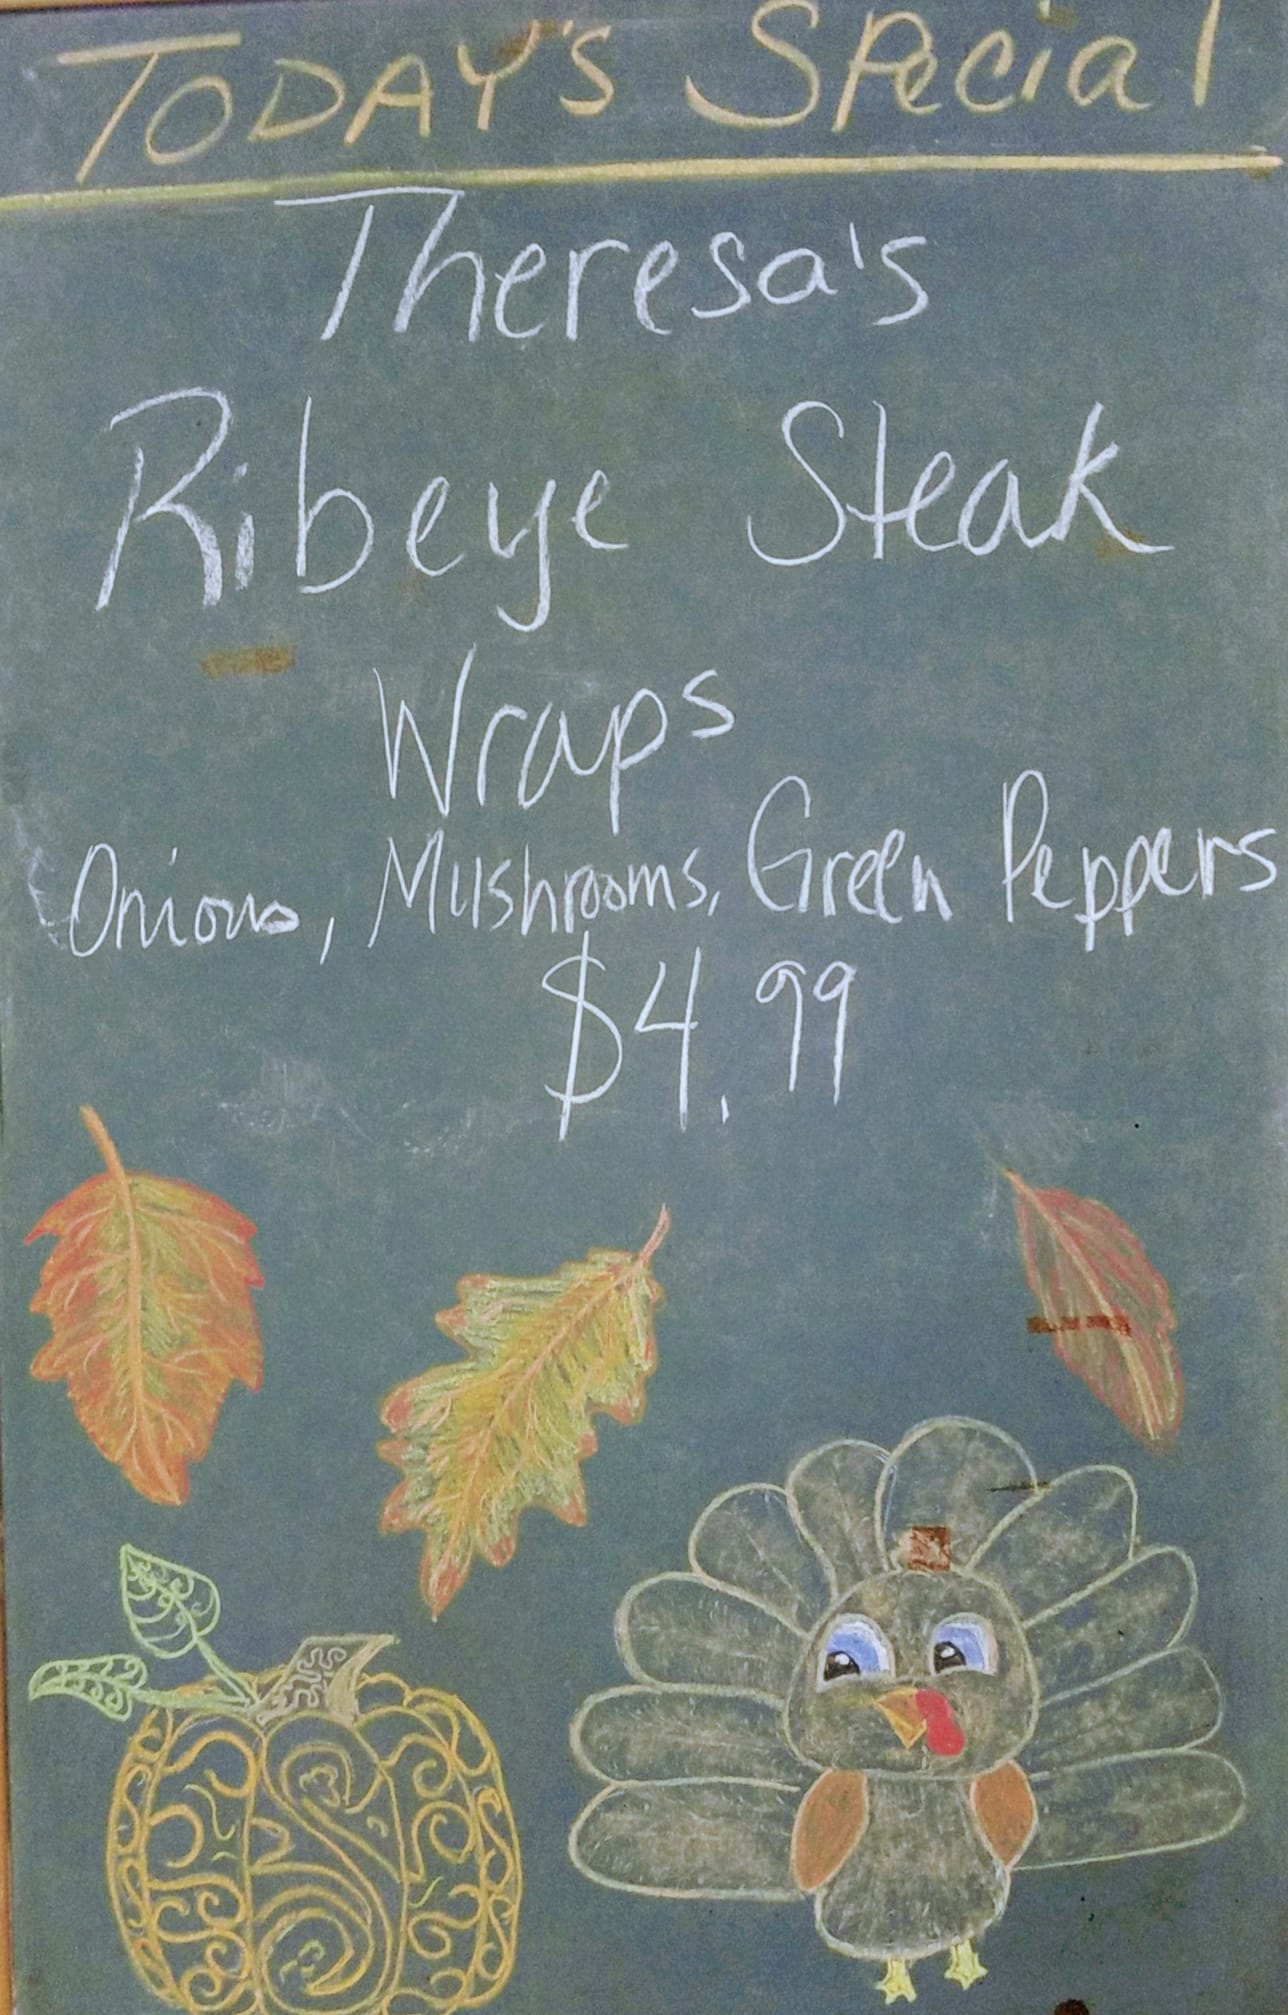 TODAY's Special
Theresa's
Ribeye Steak
Wraps
Onions, Mushrooms, Green Peppers
$4.99